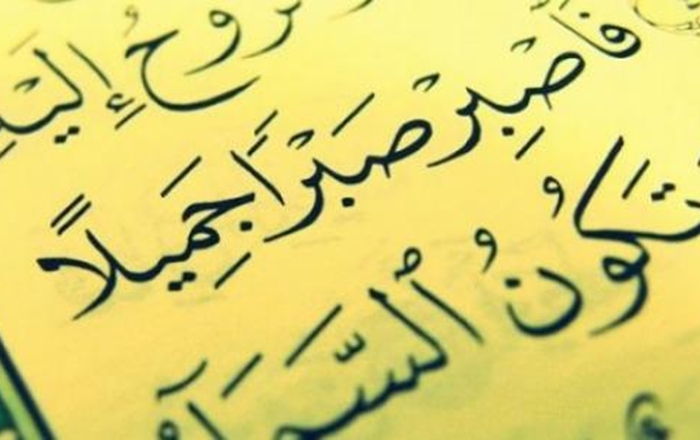 رُوحُ إِلَيْ
فَٱصْبِرْ صَبْرًا جَمِيلًا
تَكُونُ ٱلسَّمَآ